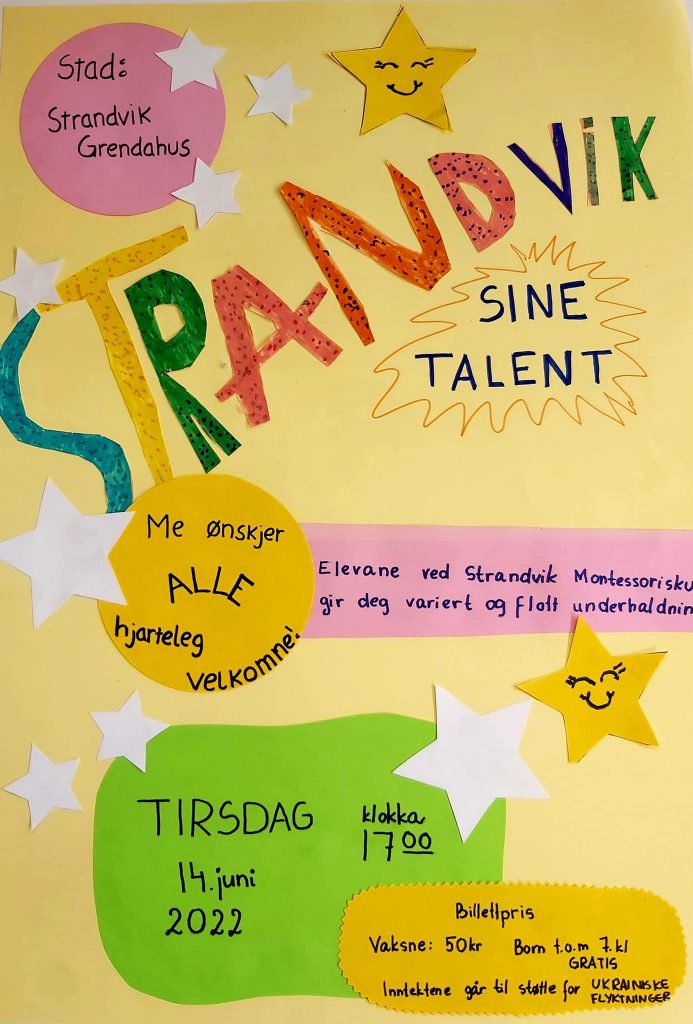 Stad:
Strandvik
Grendahus
STRANDVIK
SINE
TALENT
Me ønskjer
ALLE
hjarteleg
velkomne!
Elevane ved Strandvik Montessorisku
gir deg variert og flott underhaldnin
TIRSDAG
14. juni
2022
klokka
17 00
Billettpris
Vaksne: 50kr Born t.o.m 7.kl
GRATIS
Inntektene går til støtte for UKRAINISKE
FLYKTNINGER